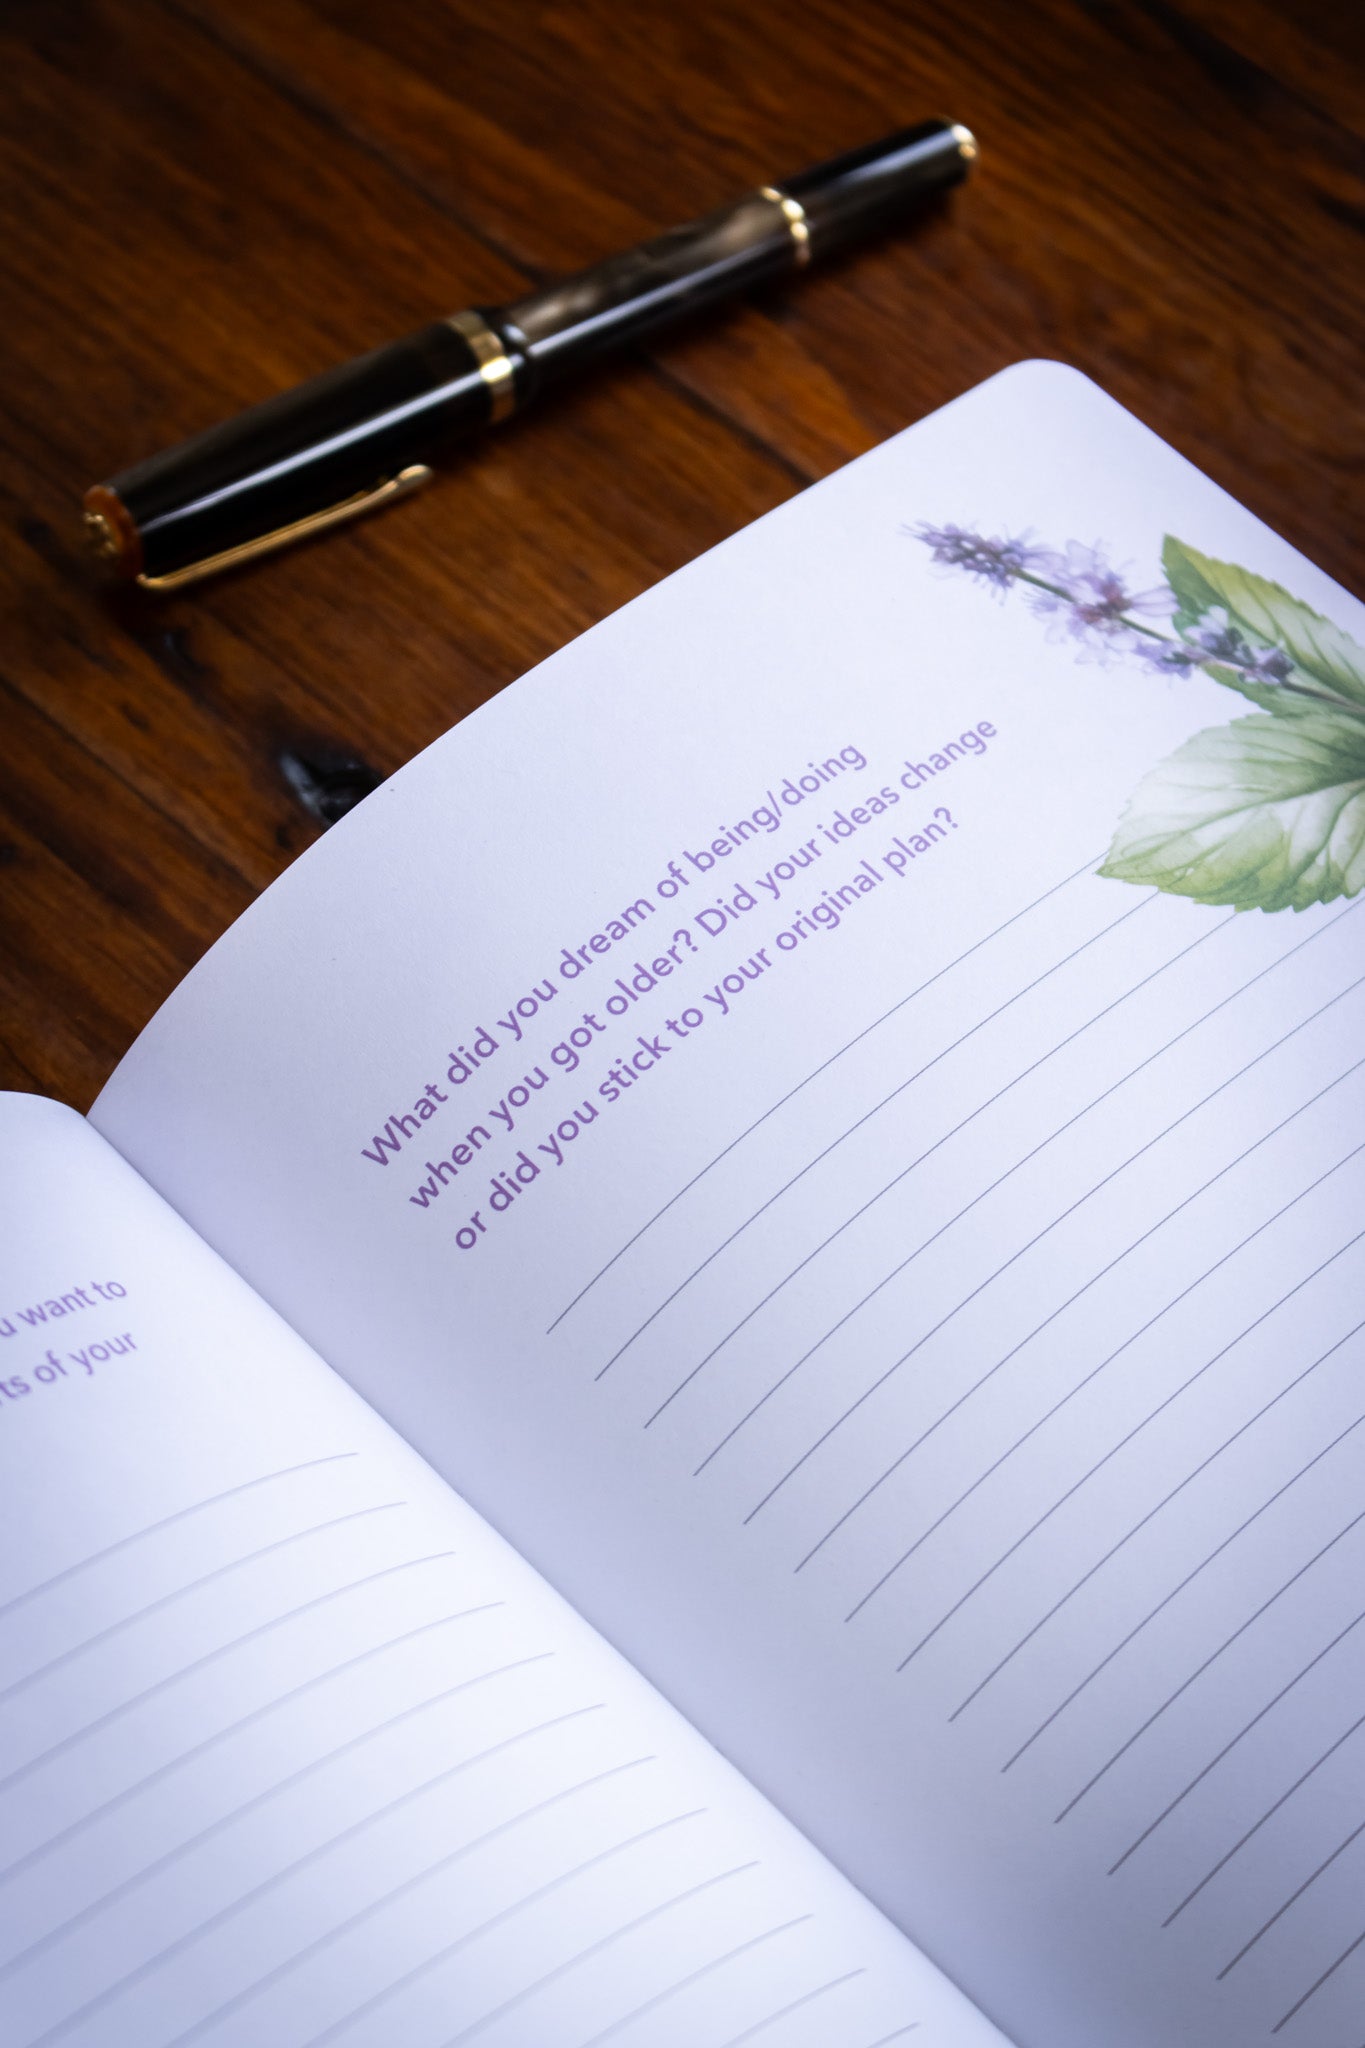 want to
of your
What did you dream of being/doing
when you got older? Did your ideas change
or did you stick to your original plan?